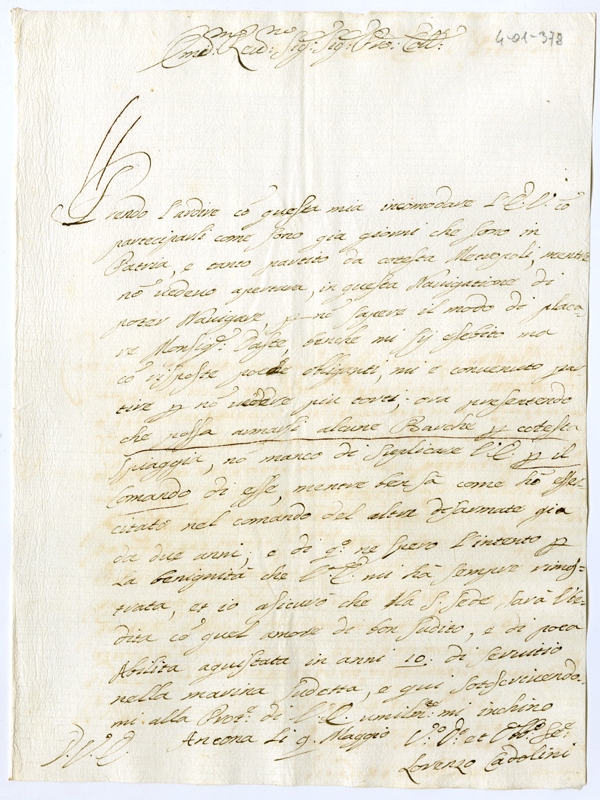 4-01-378
Em.mo e Rev.mo Sig.r Sig.r P.ron Coll.mo
Prendo l'ardire cõ questa mia incomodare l'E. V. cõ
participarli come sono gia giorni che sono in
Patria, e tanto partito da cotesta Metropoli, mentre
nõ vedevo apertura, in questa Navigatione di
poter Navigare, p nõ sapere il modo di placa-
re Monsig.r Paste, benche mi sij esebito ma
cõ risposte poche obliganti, mi e convenuto par
tire p nõ vedere piu torti; ora presentendo
che possa armarsi alcune Barche p cotesta
spiaggia, nõ manco di suplicare l'E. p il
Comando di esse, mentre ben sà come hò eser
citato nel comando del altre disarmate gia
da due anni; e di q.o ne spero l'intento p
la benignità che l'E. mi hà sempre rimos-
trata, et io asicurò che la S. Sede sarà ser-
vita cõ quel amore di bon sudito, e di poca
Abilità aquistata in anni 10: di servitio
nella marina sudetta, e qui sotoscrivendo-
mi alla Prot.e di V. E. umilm.te mi inchino
Ancona Li 9 Maggio
D. V. E.
Lorenzo Cadolini